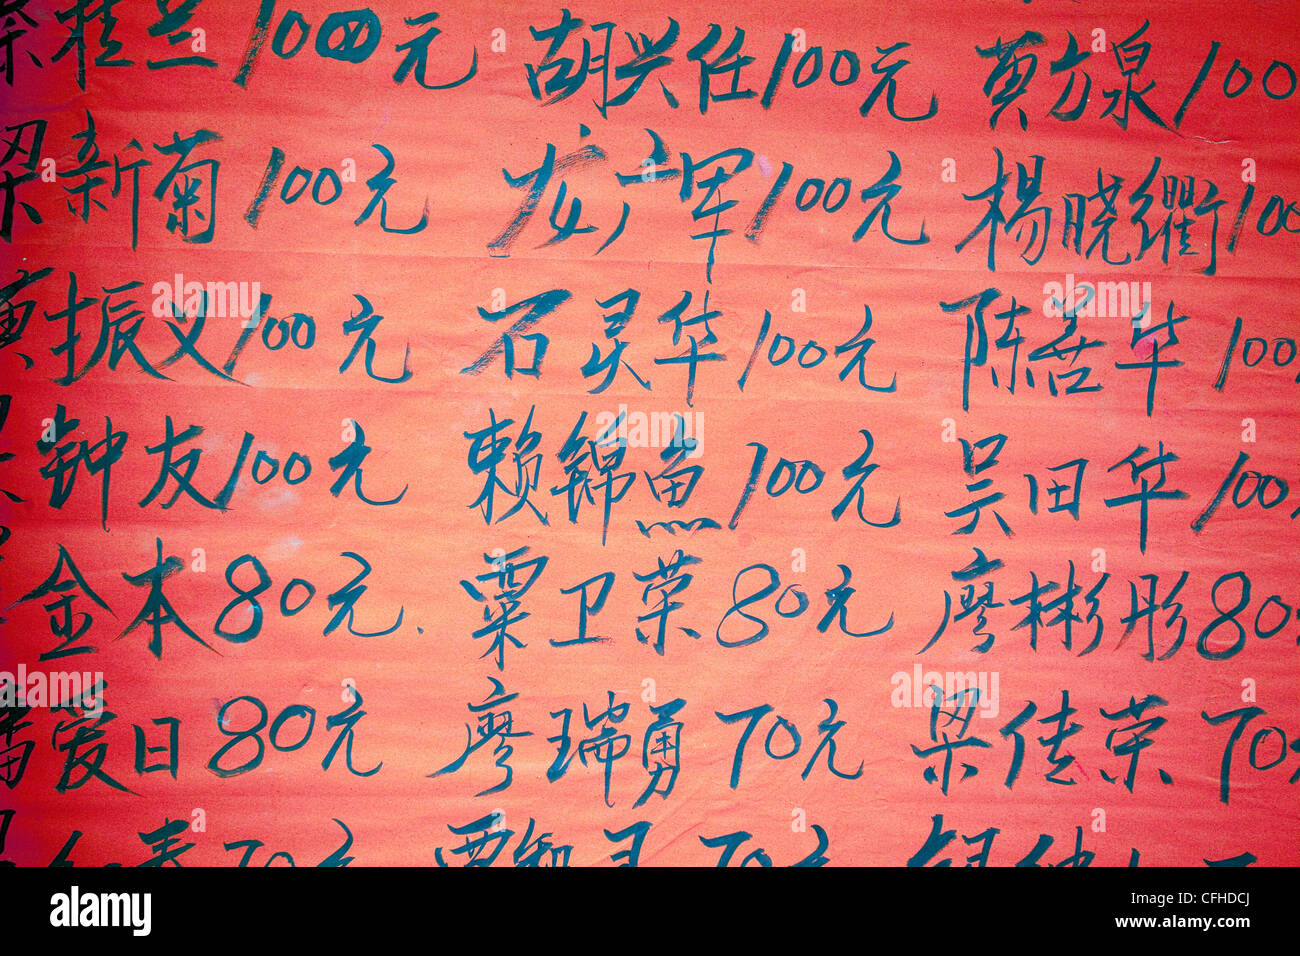 桂兰100元 胡兴任100元 黄方泉100
梁新菊100元 龙广军100元 杨晓衢100
黄振义100元 石灵华100元 陈善华100
钟友100元 赖锦鱼100元 吴田华100
金本80元 粟卫荣80元 廖彬彤80
潘爱日80元 廖瑞勇70元 梁佳荣70
春70元 70元
alamy
Image ID: CFHDCJ
www.alamy.com